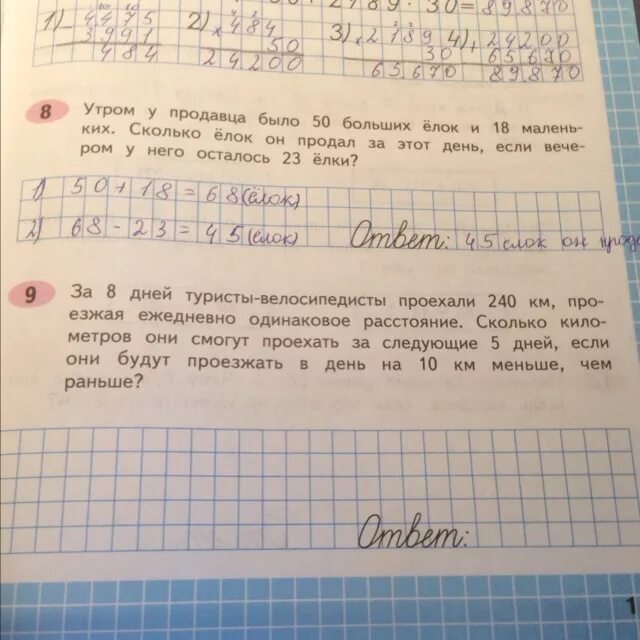 2189 · 30 = 89870
1) 4475 2) 484 3) 2189 4) 24200
3991 50 30 65670
484 24200 65670 89870
8 Утром у продавца было 50 больших ёлок и 18 малень-
ких. Сколько ёлок он продал за этот день, если вече-
ром у него осталось 23 ёлки?
1) 50+18=68(ёлок)
2) 68-23=45(ёлок) Ответ: 45 ёлок он
9 За 8 дней туристы-велосипедисты проехали 240 км, про-
езжая ежедневно одинаковое расстояние. Сколько кило-
метров они смогут проехать за следующие 5 дней, если
они будут проезжать в день на 10 км меньше, чем
раньше?
Ответ:
1